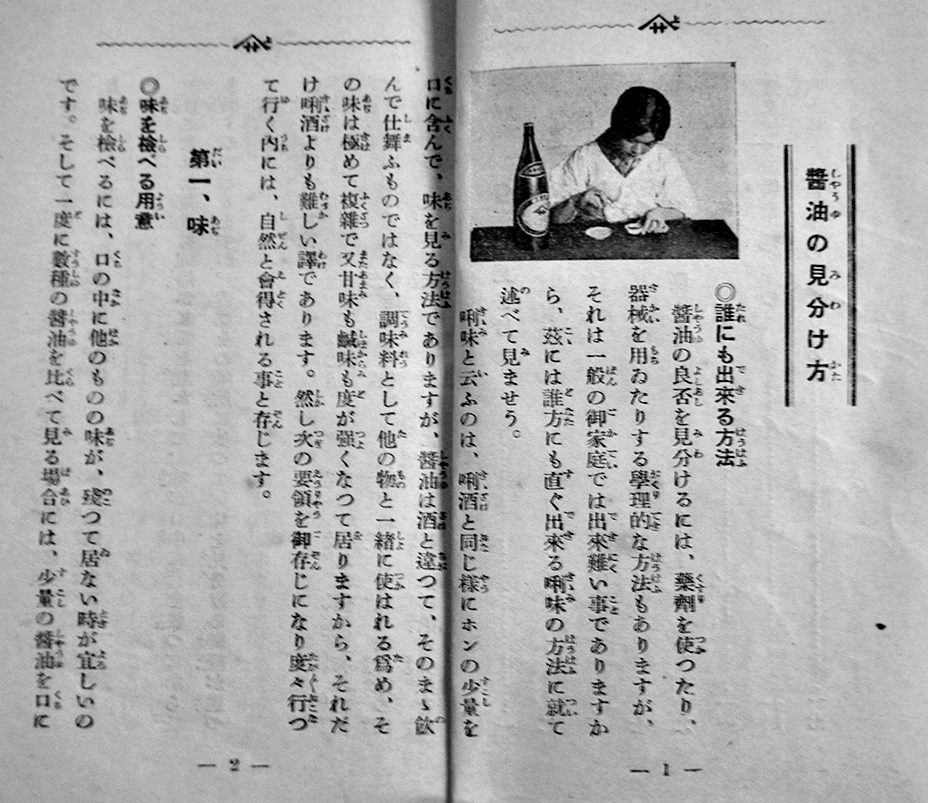 醬油の見分け方
◎誰にも出來る方法
醬油の良否を見分けるには、藥劑を使つたり、
器械を用ゐたりする學理的な方法もありますが、
それは一般の御家庭では出來難い事でありますか
ら、茲には誰方にも直ぐ出來る唎味の方法に就て
述べて見ませう。
唎味と云ふのは、唎酒と同じ樣にホンの少量を
— 1 —
口に含んで、味を見る方法でありますが、醬油は酒と違つて、そのまゝ飮
んで仕舞ふものではなく、調味料として他の物と一緒に使はれる爲め、そ
の味は極めて複雜で又甘味も鹹味も度が强くなつて居りますから、それだ
け唎酒よりも難しい譯であります。然し次の要領を御存じになり度々行つ
て行く內には、自然と會得される事と存じます。
第一、味
◎味を檢べる用意
味を檢べるには、口の中に他のものの味が、殘つて居ない時が宜しいの
です。そして一度に數種の醬油を比べて見る場合には、少量の醬油を口に
— 2 —